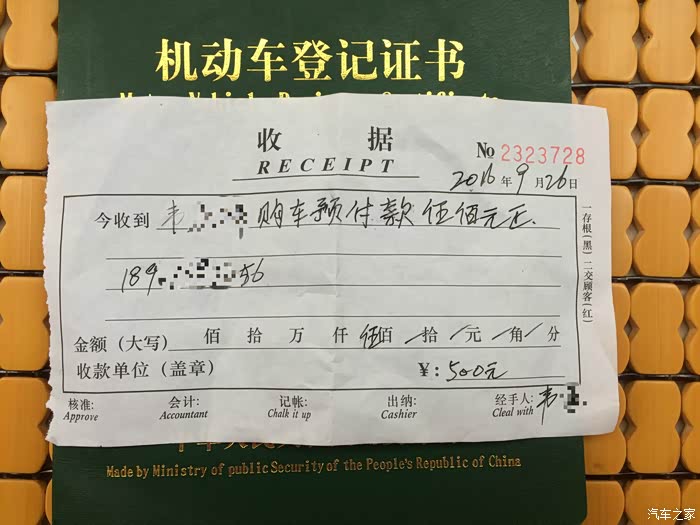 机动车登记证书
收 据
RECEIPT
No 2323728
2016年9月26日
今收到 韦 购车预付款 伍佰元正.
189 56
金额（大写） 佰 拾 万 仟 伍佰 拾 元 角 分
收款单位（盖章） ¥: 500元
核准: 会计: 记帐: 出纳: 经手人: 韦
Approve Accountant Chalk it up Cashier Cleal with
一存根(黑) 二交顾客(红)
Made by Ministry of public Security of the People's Republic of China
汽车之家